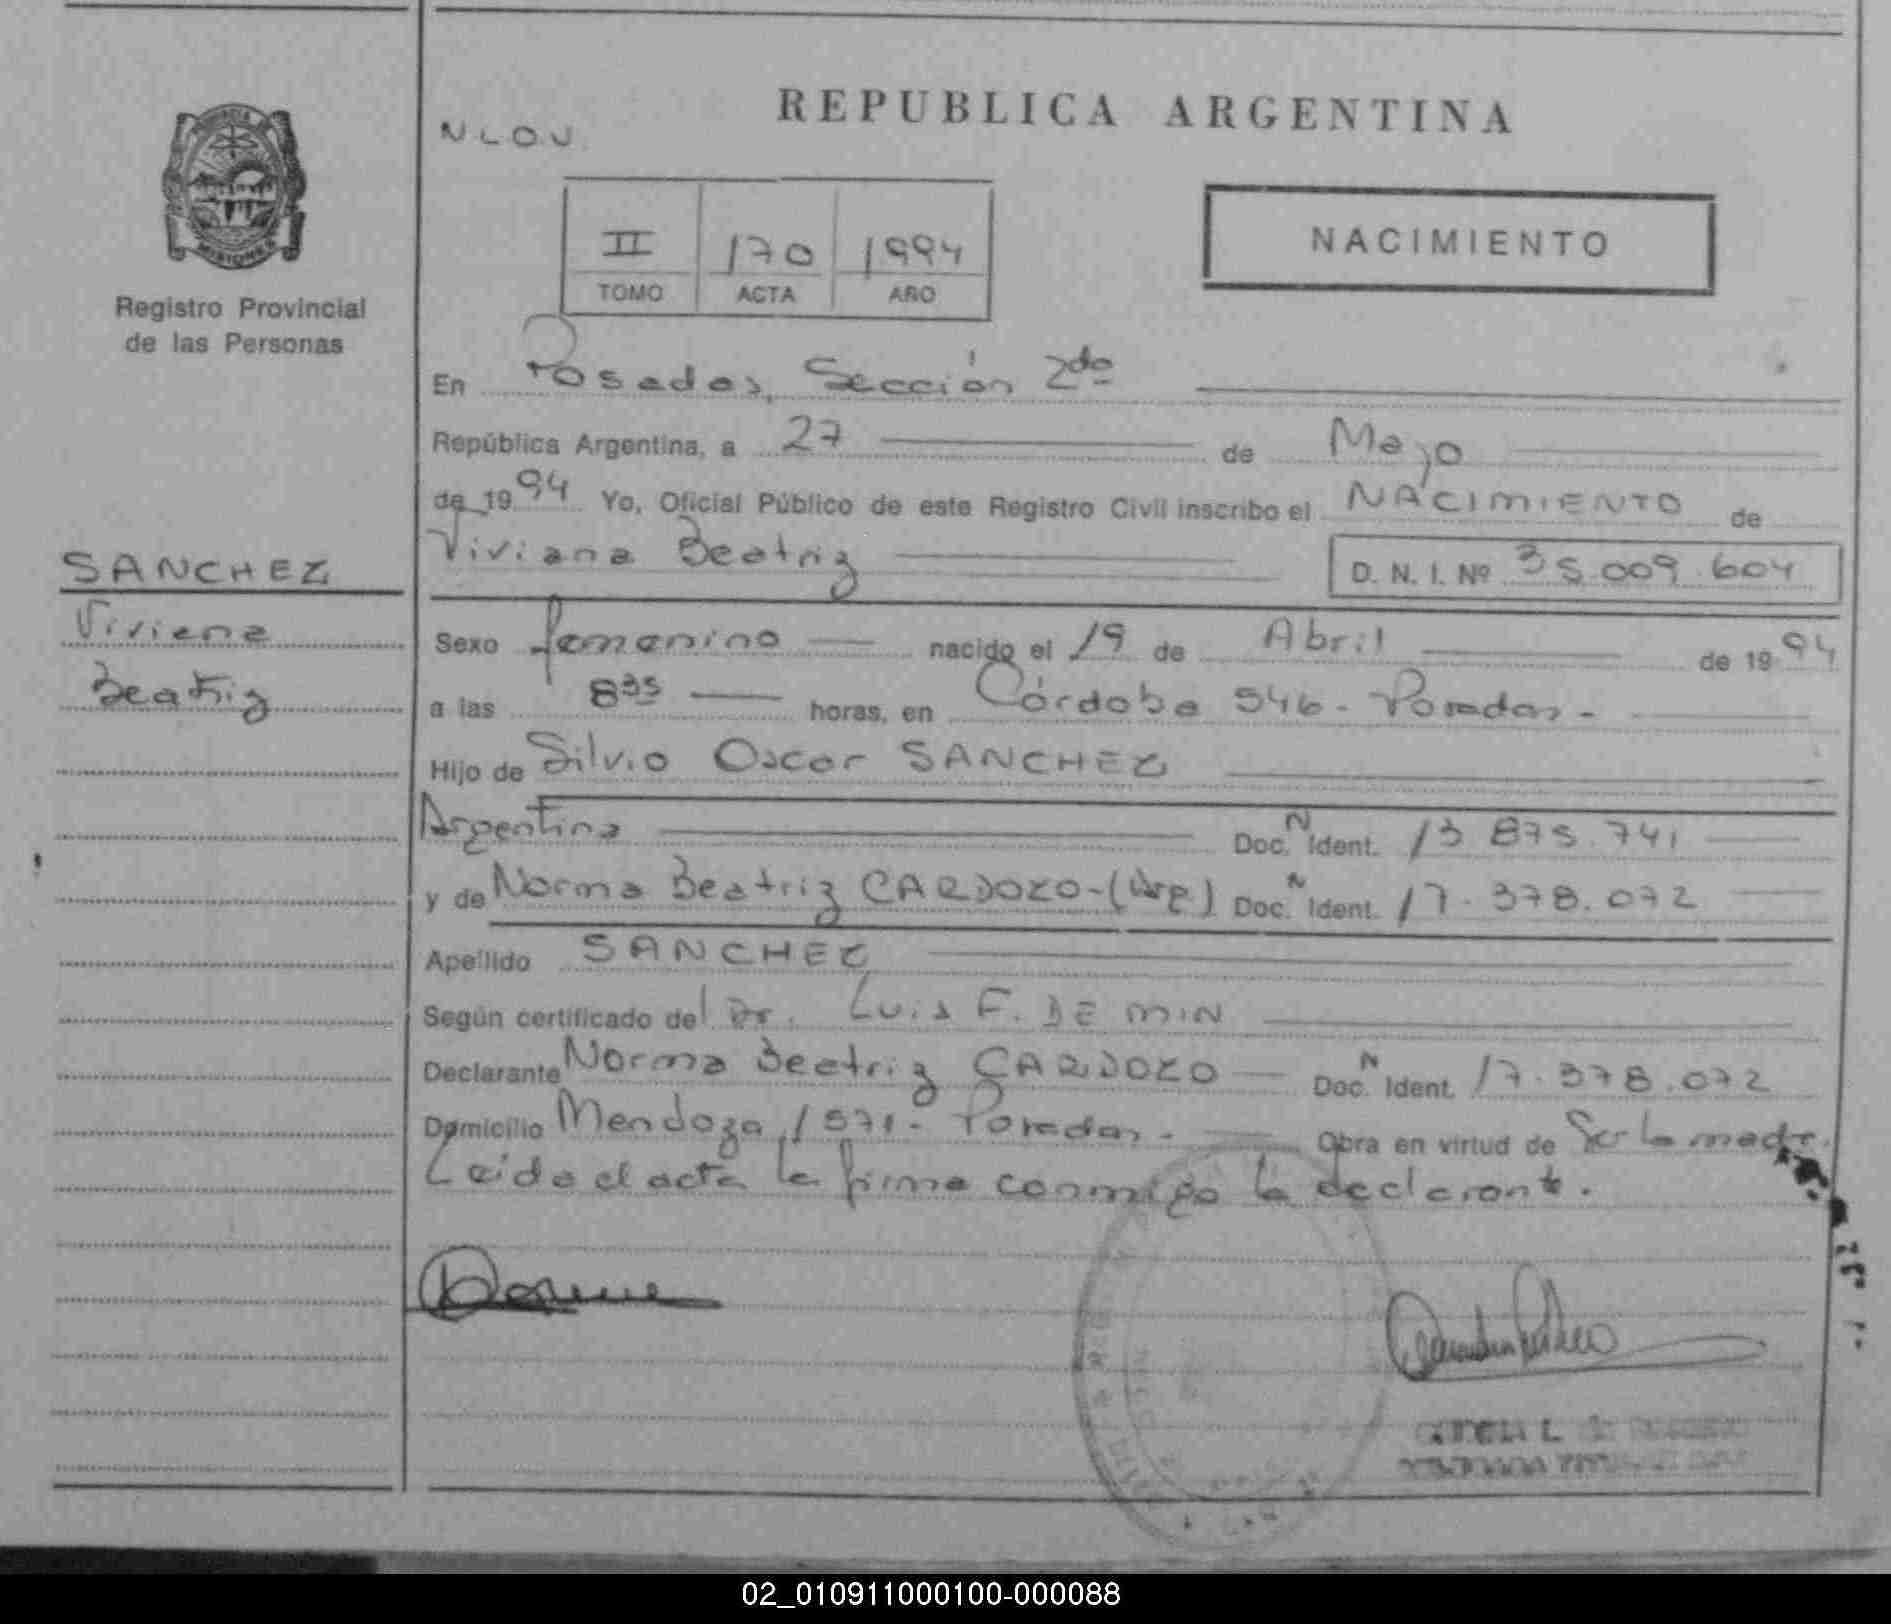 REPUBLICA ARGENTINA
N L O U
NACIMIENTO
II 170 1994
TOMO ACTA AÑO
MISIONES
Registro Provincial
de las Personas
En Posadas, Sección 2da
República Argentina, a 27 de Mayo
de 1994 Yo, Oficial Público de este Registro Civil inscribo el NACIMIENTO de
Viviana Beatriz D. N. I. Nº 35.009.604
SANCHEZ
Viviana
Beatriz
Sexo femenino nacido el 19 de Abril de 1994
a las 8 35 horas, en Córdoba 546 - Posadas -
Hijo de Silvio Oscar SANCHEZ
Argentina Doc. N Ident. 13.875.741
y de Norma Beatriz CARDOZO - (Arg) Doc. N Ident. 17.378.072
Apellido SANCHEZ
Según certificado del Dr. Luis F. DE MIN
Declarante Norma Beatriz CARDOZO Doc. N Ident. 17.378.072
Domicilio Mendoza 1571 - Posadas - Obra en virtud de Ser la madre.
Leida el acta la firma conmigo la declarante.
02_010911000100-000088